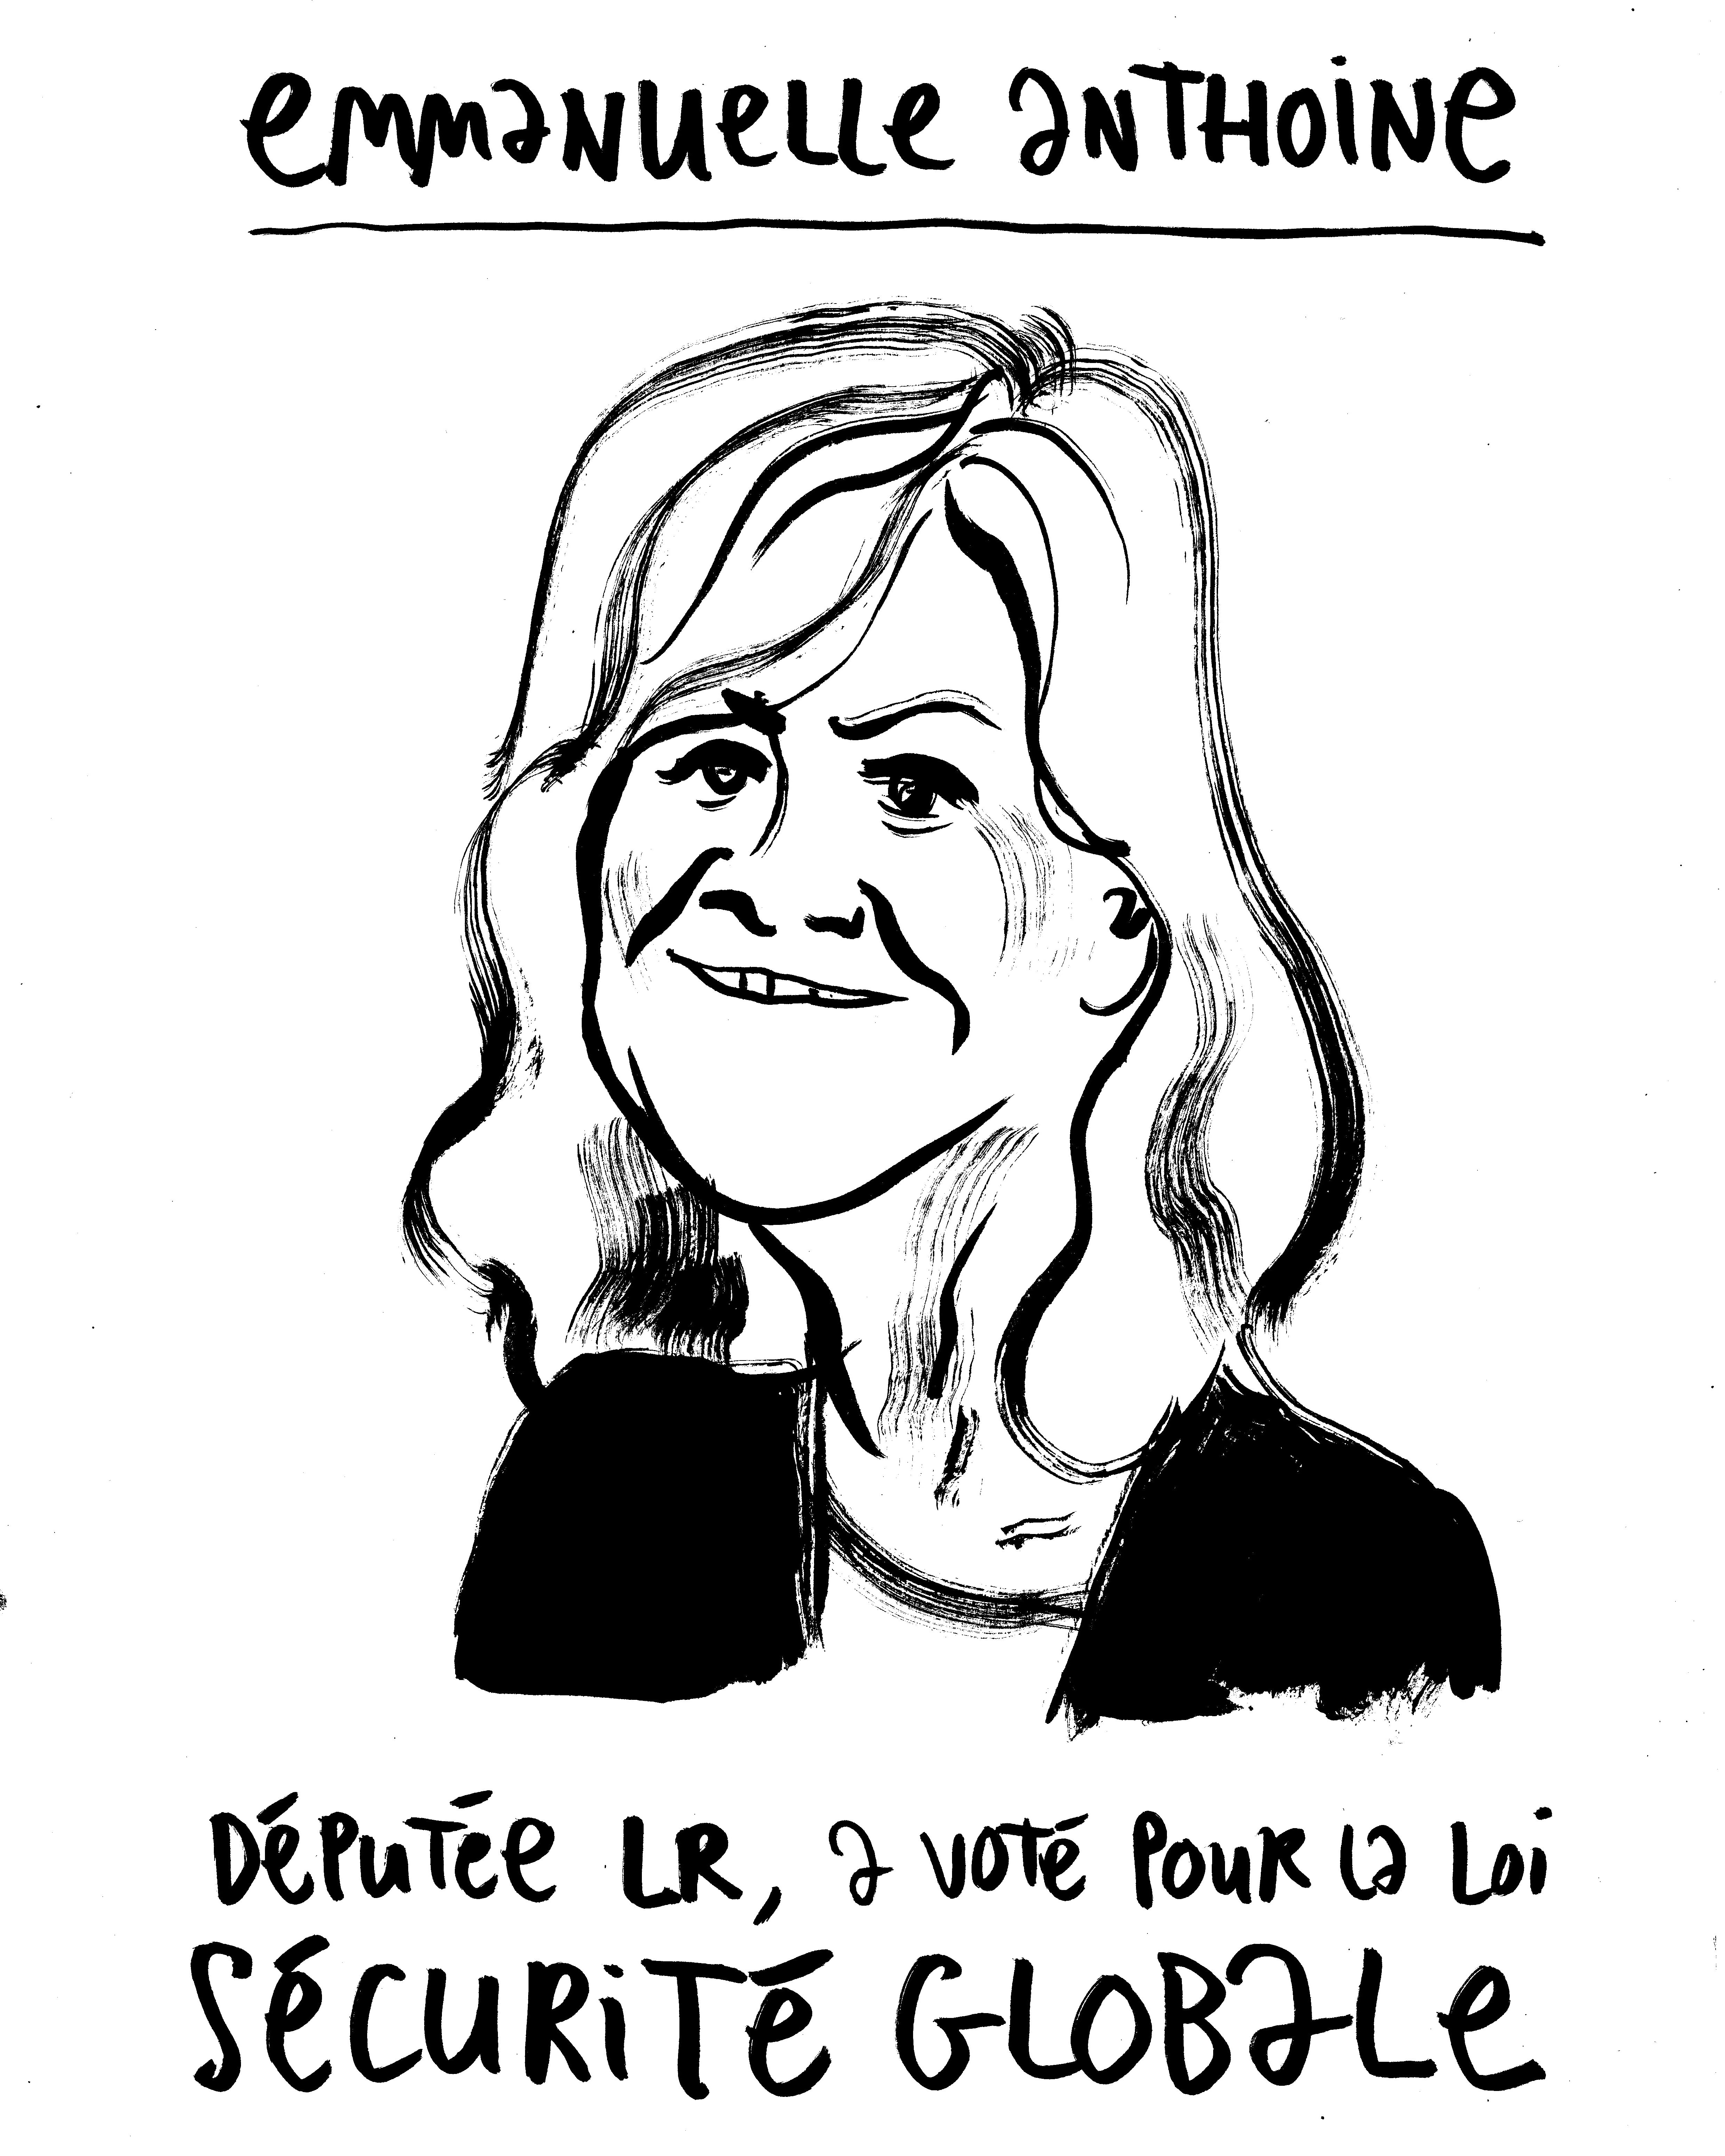 emmanuelle anthoine
Députée LR, a voté pour la loi
Sécurité Globale